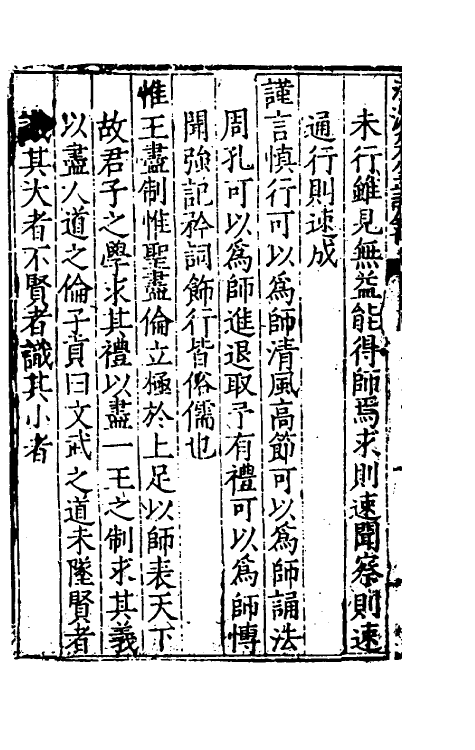 未行雖見無益能得師焉求則速聞察則速
通行則速成
謹言慎行可以爲師清風高節可以爲師誦法
周孔可以爲師進退取予有禮可以爲師愽
聞強記矜詞飾行皆俗儒也
惟王盡制惟聖盡倫立極於上足以師表天下
故君子之學求其禮以盡一王之制求其義
以盡人道之倫子貢曰文武之道未墜賢者
識其大者不賢者識其小者